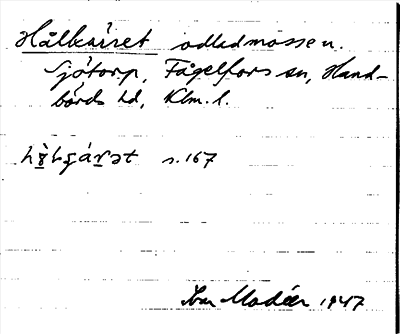 Hålkärret odlad mosse n.
Sjötorp, Fågelfors sn, Hand-
börds hd, Klm. l.
s. 167
Ivar Modéer 1947